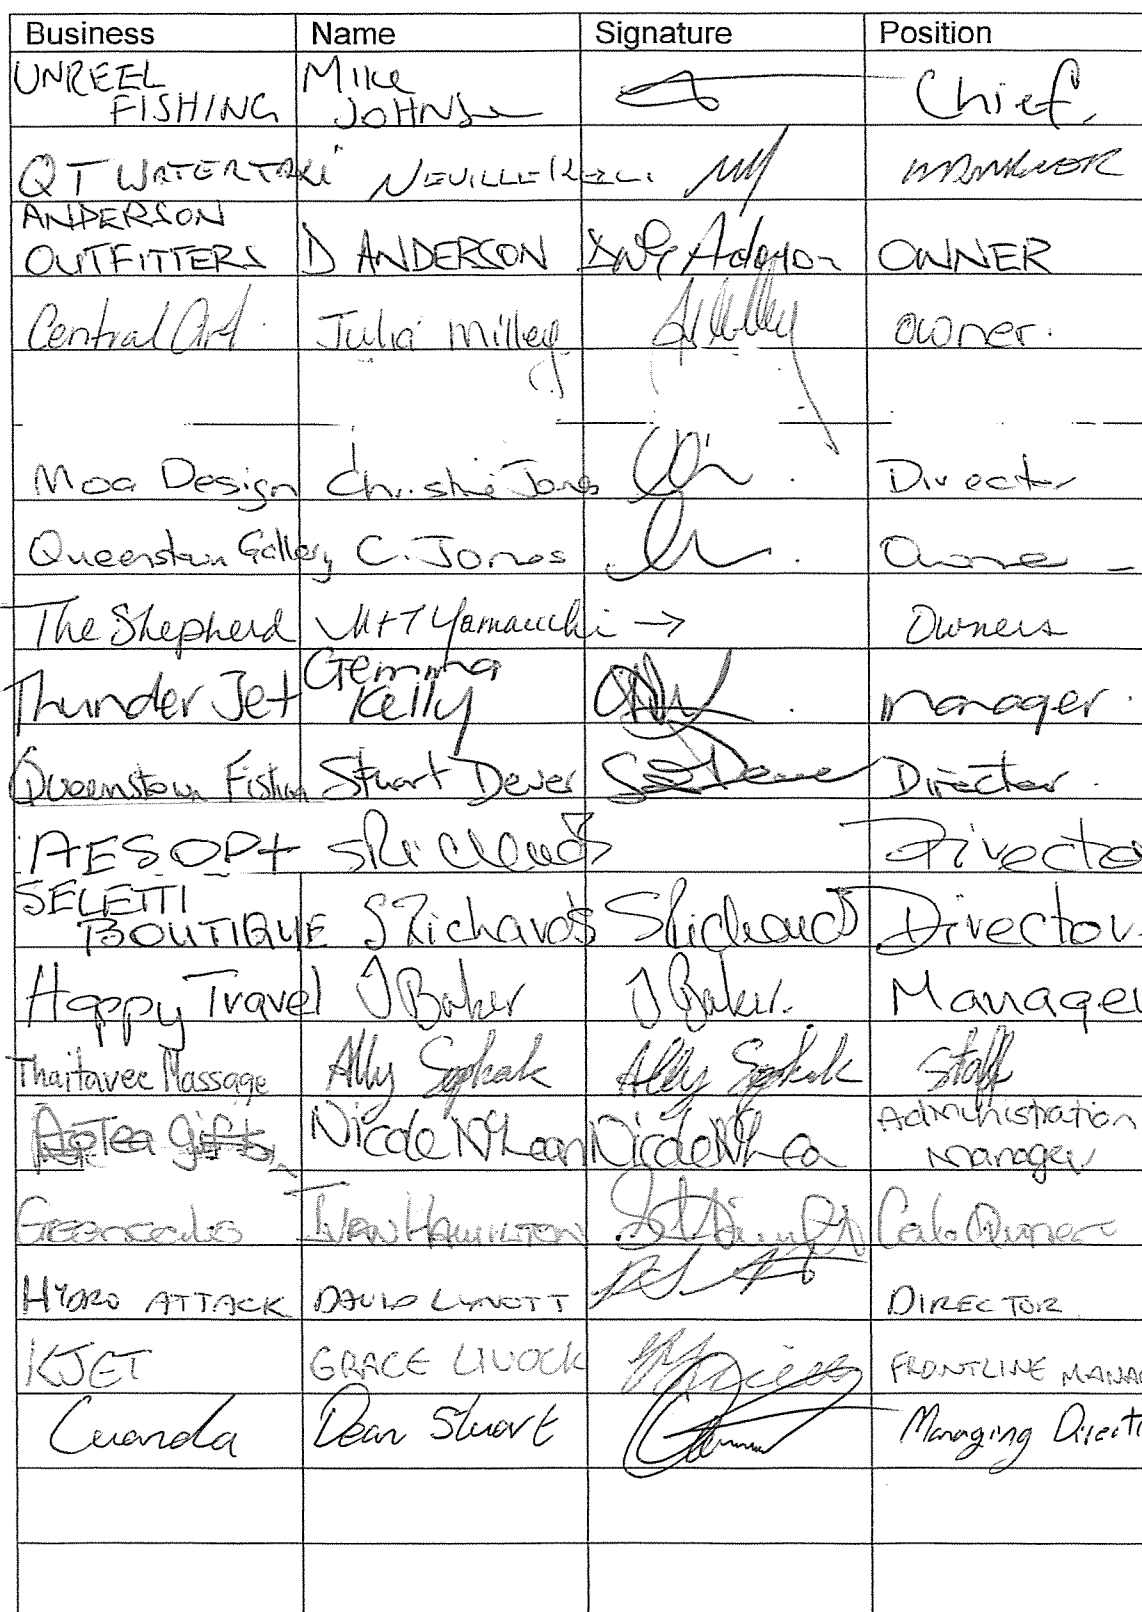 Business Name Signature Position
UNREEL FISHING Mike JOHNS Chief.
QT WATERTAXI NEVILLE MANAGER
ANDERSON OUTFITTERS D ANDERSON OWNER
Central Art. Julia Milley owner.
Moa Design Christine Jones Director
Queenstown Gallery C. Jones Owner
The Shepherd M+T Yamauchi → Owners
Thunder Jet Gemma Kelly manager.
Queenstown Fishin Stuart Dever Director.
AESOP+ S Richards Directo
SELETTI BOUTIQUE S Richards S Richards Director
Happy Travel J Baker J Baker. Manage
Thaitavee Massage Ally Ally Staff
Gifts Nicole McLean Administration Manager
IVAN HAMILTON Owner
HYDRO ATTACK DAVID LYNOTT DIRECTOR
KJET GRACE LIVOCK FRONTLINE MANA
Cuanda Dean Stuart Managing Direct